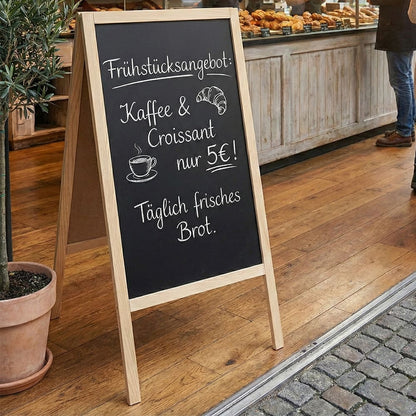 Frühstücksangebot:
Kaffee &
Croissant
nur 5€!
Täglich frisches
Brot.